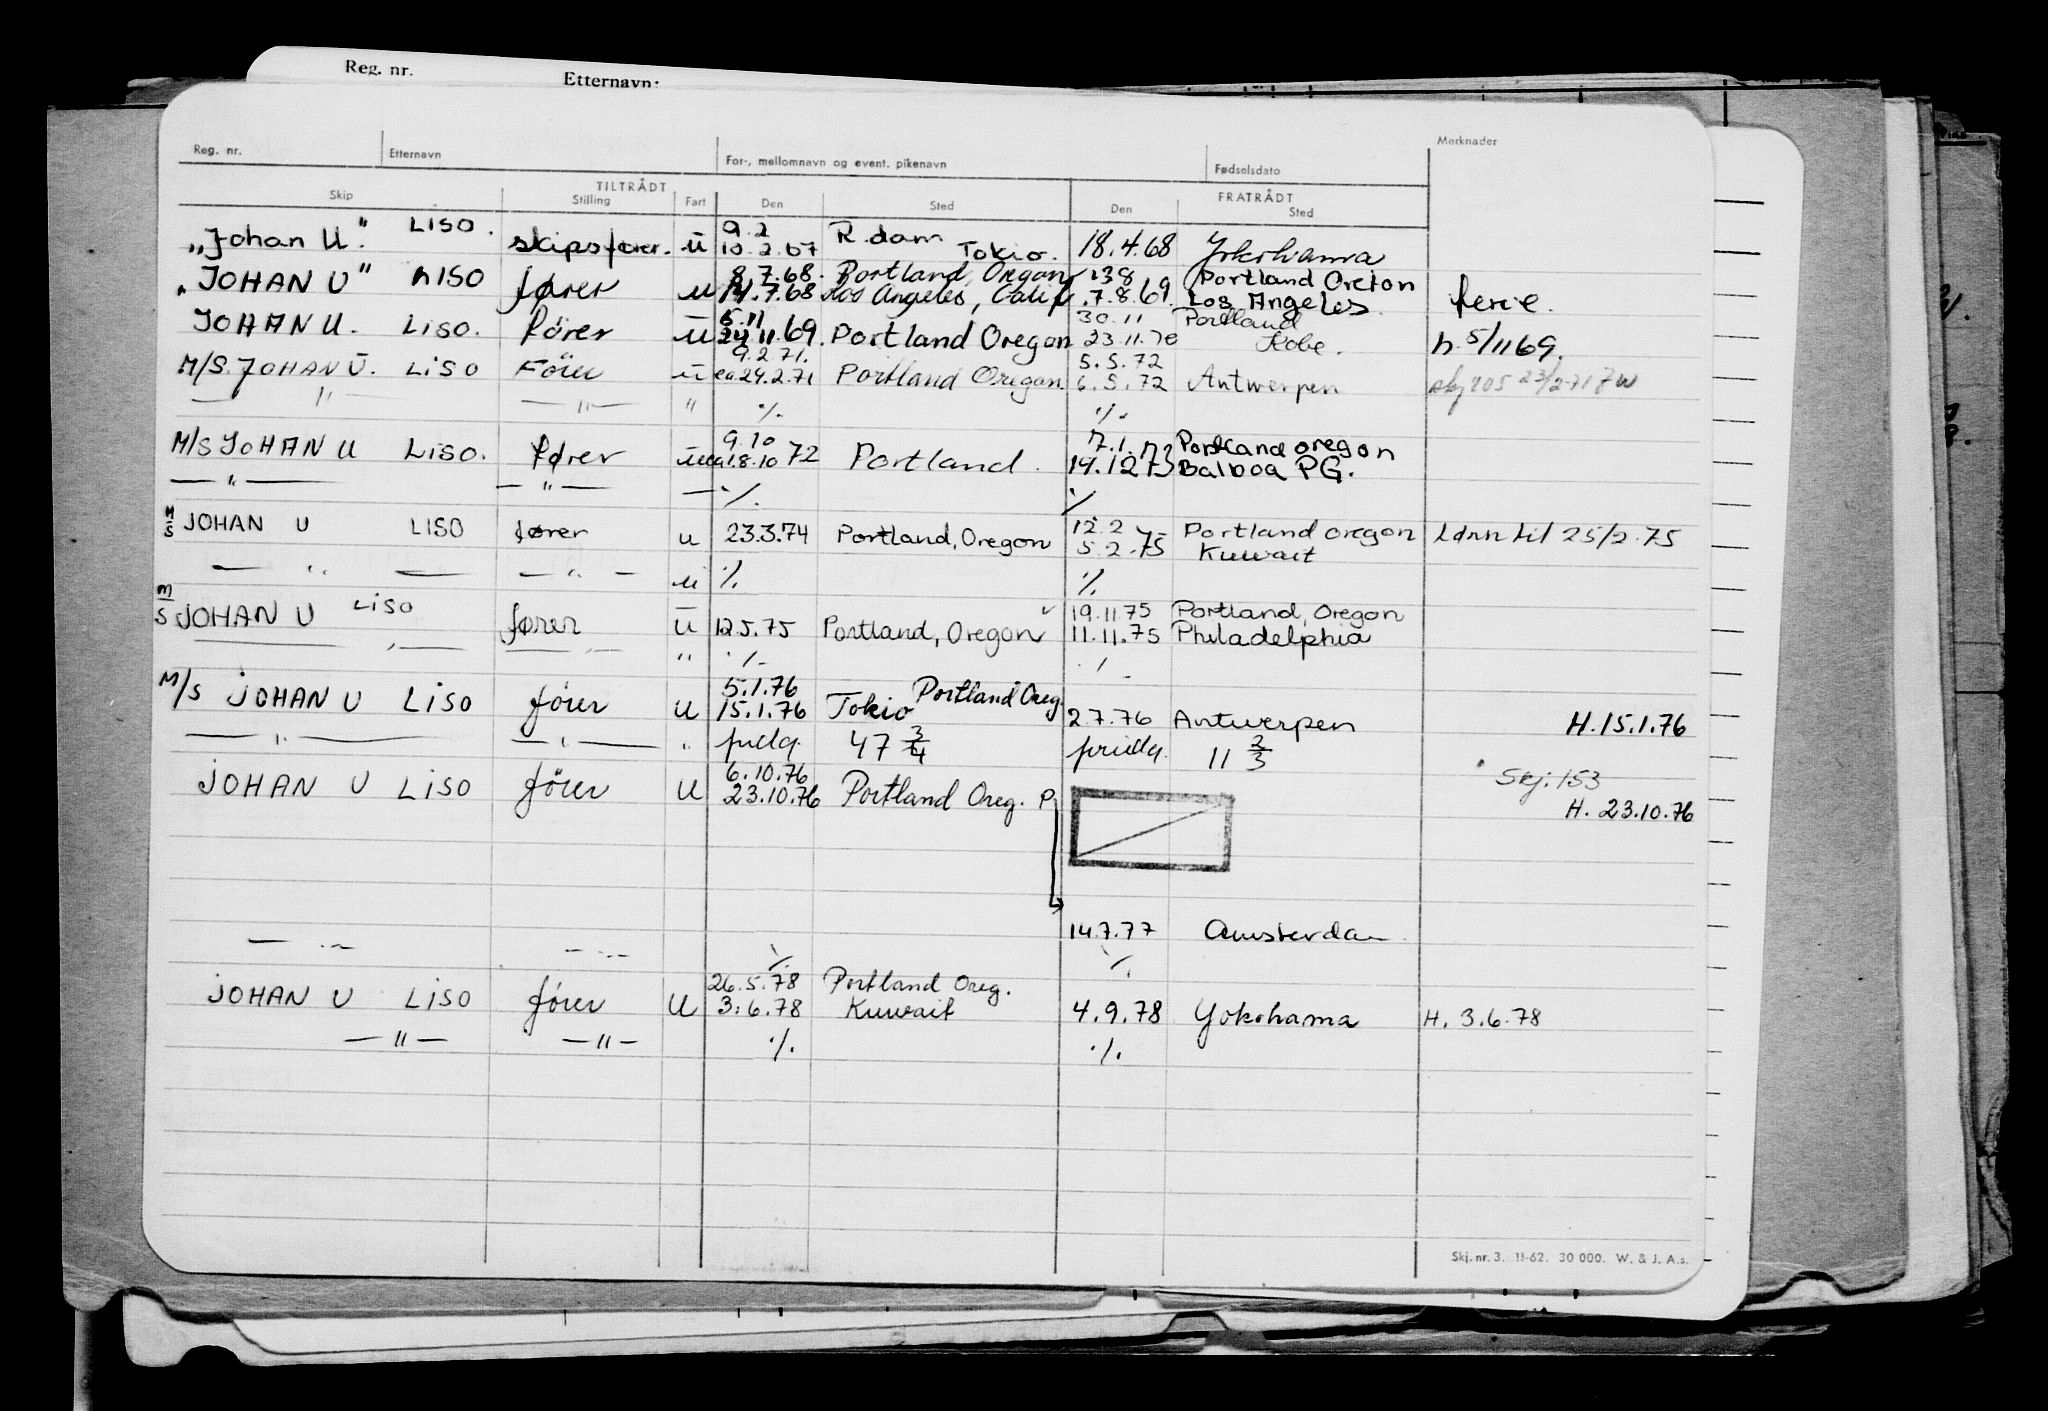 Reg. nr. Etternavn:
Reg. nr. Etternavn For-, mellomnavn og event. pikenavn Fødselsdato Merknader
TILTRÅDT FRATRÅDT
Skip Stilling Fart Den Sted Den Sted
9.2 R.dam
„Johan U." LISO. skipsfører. u 10.2.67 Tokio. 18.4.68 Yokohama
8.7.68. Portland, Oregon 138 Portland Oreton
„JOHAN U" LISO fører u 14.7.68 Los Angeles, Calif .7.8.69. Los Angeles. ferie.
5.11 30.11 Portland
JOHAN U. LISO. fører u 24.11.69. Portland Oregon 23.11.70 Kobe. h. 5/11 69.
9.2.71. 5.5.72
M/S. JOHAN U. LISO Fører u ca 24.2.71 Portland Oregon. 6.5.72 Antwerpen skj 205 23/2-71
— " — — " — " ·/. ·/.
9.10 7.1. Portland oregon
M/S JOHAN U LISO. fører u ca 18.10 72 Portland. 14.12 73 Balboa PG.
— " — — " — — ·/. ·/.
12.2 Portland oregon
M/S JOHAN U LISO fører u 23.3.74 Portland, Oregon 5.2.75 Kuwait Lønn til 25/2.75
— " — — " — u ·/. ·/.
19.11.75 Portland, Oregon
M/S JOHAN U LISO fører u 12.5.75 Portland, Oregon 11.11.75 Philadelphia
— " — — " — " ·/. ·/.
5.1.76 Portland Oreg.
M/S JOHAN U LISO fører U 15.1.76 Tokio 2.7.76 Antwerpen H. 15.1.76
— " — — " — " 47 3/4 11 2/3
6.10.76 Skj. 153
JOHAN U LISO fører U 23.10.76 Portland Oreg. P H. 23.10.76
14.7.77 Amsterdam
— " — — " — ·/. ·/.
26.5.78 Portland Oreg.
JOHAN U LISO fører U 3.6.78 Kuwait 4.9.78 Yokohama H. 3.6.78
— " — — " — ·/. ·/.
Skj. nr. 3. 11-62. 30 000. W. & J. A.s.